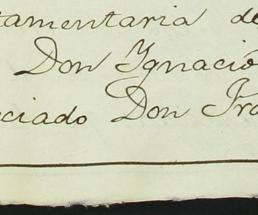 tamentaria de
Don Ygnació
ciado Don Fra